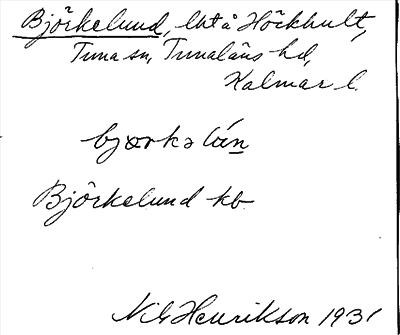 Björkelund, lht å Höckhult,
Tuna sn, Tunaläns hd,
Kalmar l.
Björkelund kb.
Nils Henrikson 1931